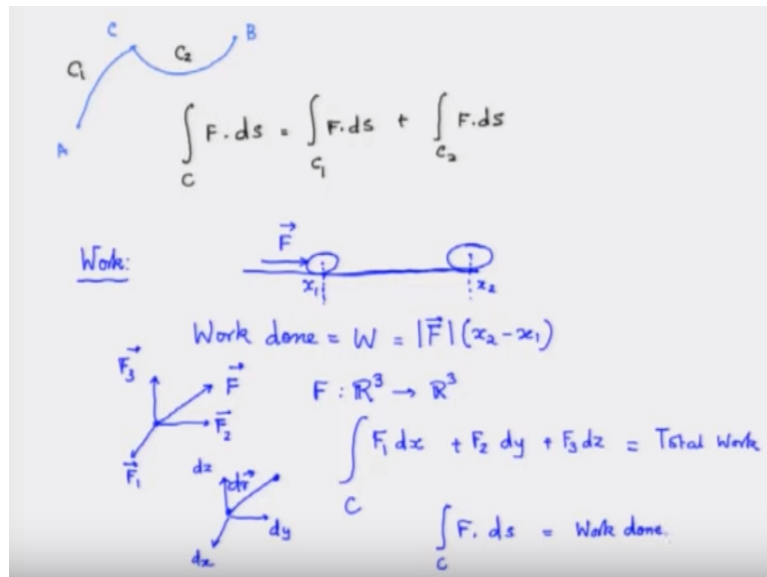 C
C₂
B
C₁
A
∫_C F. ds = ∫_C₁ F. ds + ∫_C₂ F. ds
Work:
F⃗
x₁
x₂
Work done = W = |F⃗| (x₂-x₁)
F⃗₃
F⃗
F⃗₂
F⃗₁
F : ℝ³ → ℝ³
∫_C F₁ dx + F₂ dy + F₃ dz = Total Work
dz
dr⃗
dy
dx
∫_C F. ds = Work done.